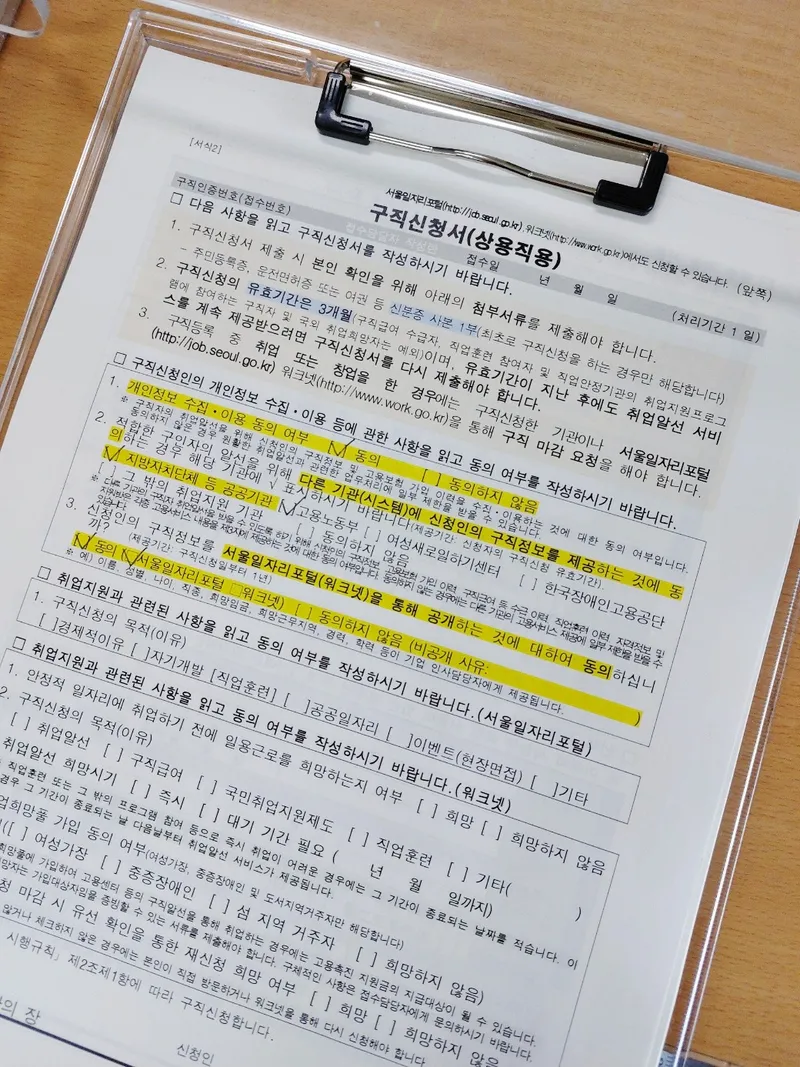 [서식2]
서울일자리포털(http://job.seoul.go.kr), 워크넷(http://www.work.go.kr)에서도 신청할 수 있습니다. (앞쪽)
구직신청서(상용직용)
구직인증번호(접수번호) 접수일 년 월 일 (처리기간 1 일)
□ 다음 사항을 읽고 구직신청서를 작성하시기 바랍니다.
1. 구직신청서 제출 시 본인 확인을 위해 아래의 첨부서류를 제출해야 합니다.
- 주민등록증, 운전면허증 또는 여권 등 신분증 사본 1부(최초로 구직신청을 하는 경우만 해당합니다)
2. 구직신청의 유효기간은 3개월(구직급여 수급자, 직업훈련 참여자 및 직업안정기관의 취업지원프로그
램에 참여하는 구직자 및 국외 취업희망자는 예외)이며, 유효기간이 지난 후에도 취업알선 서비
스를 계속 제공받으려면 구직신청서를 다시 제출해야 합니다.
3. 구직등록 중 취업 또는 창업을 한 경우에는 구직신청한 기관이나 서울일자리포털
(http://job.seoul.go.kr) 워크넷(http://www.work.go.kr)을 통해 구직 마감 요청을 해야 합니다.
□ 구직신청인의 개인정보 수집·이용 등에 관한 사항을 읽고 동의 여부를 작성하시기 바랍니다.
1. 개인정보 수집·이용 동의 여부 [√] 동의 [ ] 동의하지 않음
※ 구직자의 취업알선을 위해 신청인의 구직정보 및 고용보험 가입 이력을 수집·이용하는 것에 대한 동의 여부입니다.
동의하지 않은 경우 원활한 취업알선과 관련한 업무처리에 일부 제한을 받을 수 있습니다.
2. 적합한 구인자의 알선을 위해 다른 기관(시스템)에 신청인의 구직정보를 제공하는 것에 동
의하는 경우 해당 기관에 √ 표시하시기 바랍니다(제공기간: 신청자의 구직신청 유효기간).
[√] 지방자치단체 등 공공기관 [√]고용노동부 [ ] 여성새로일하기센터 [ ] 한국장애인고용공단
[ ] 그 밖의 취업지원 기관 [ ] 동의하지 않음
3. 신청인의 구직정보를 서울일자리포털(워크넷)을 통해 공개하는 것에 대하여 동의하십니
까? (제공기간: 구직신청일부터 1년)
[√]동의 [√]서울일자리포털 □워크넷) [ ] 동의하지 않음 (비공개 사유: )
※ 예) 이름, 성별, 나이, 직종, 희망임금, 희망근무지역, 경력, 학력 등이 기업 인사담당자에게 제공됩니다.
□ 취업지원과 관련된 사항을 읽고 동의 여부를 작성하시기 바랍니다.(서울일자리포털)
1. 구직신청의 목적(이유)
[ ]경제적이유 [ ]자기개발 [직업훈련] [ ]공공일자리 [ ]이벤트(현장면접) [ ]기타
□ 취업지원과 관련된 사항을 읽고 동의 여부를 작성하시기 바랍니다.(워크넷)
1. 안정적 일자리에 취업하기 전에 일용근로를 희망하는지 여부 [ ] 희망 [ ] 희망하지 않음
2. 구직신청의 목적(이유)
[ ] 취업알선 [ ] 구직급여 [ ] 국민취업지원제도 [ ] 직업훈련 [ ] 기타( )
취업알선 희망시기 [ ] 즉시 [ ] 대기 기간 필요 ( 년 월 일까지)
직업훈련 또는 그 밖의 프로그램 참여 등으로 즉시 취업이 어려운 경우에는 그 기간이 종료되는 날짜를 적습니다. 이
경우 그 기간이 종료되는 날 다음날부터 취업알선 서비스가 제공됩니다.
업희망풀 가입 동의 여부(여성가장, 중증장애인 및 도서지역거주자만 해당합니다)
([ ] 여성가장 [ ] 중증장애인 [ ] 섬 지역 거주자 [ ] 희망하지 않음)
희망풀에 가입하여 고용센터 등의 구직알선을 통해 취업하는 경우에는 고용촉진 지원금의 지급대상이 될 수 있습니다.
망자는 가입대상자임을 증빙할 수 있는 서류를 제출해야 합니다. 구체적인 사항은 접수담당자에게 문의하시기 바랍니다.
청 마감 시 유선 확인을 통한 재신청 희망 여부 [ ] 희망 [ ] 희망하지 않음
않거나 체크하지 않은 경우에는 본인이 직접 방문하거나 워크넷을 통해 다시 신청해야 합니다.
시행규칙」 제2조제1항에 따라 구직신청합니다.
신청인
의 장